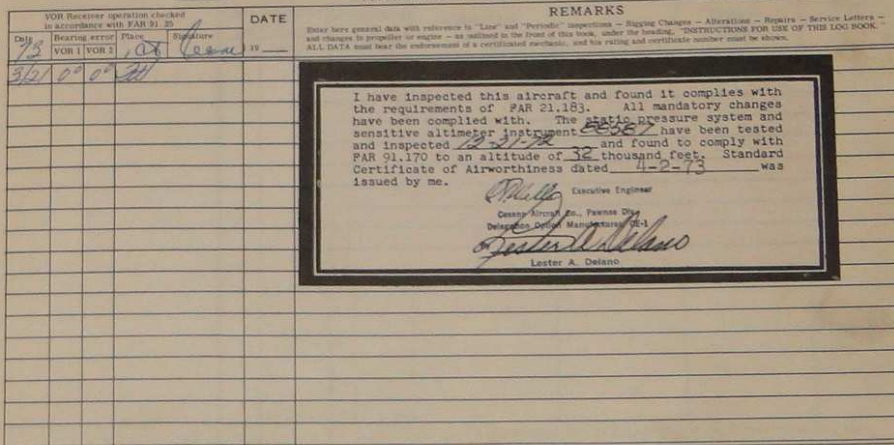 VOR Receiver operation checked
in accordance with FAR 91.25
Date
Bearing error
Place
Signature
VOR 1
VOR 2
73
3/21 0° 0°
DATE
19
REMARKS
Enter here general data with reference to "Line" and "Periodic" inspections — Rigging Changes — Alterations — Repairs — Service Letters —
and changes in propeller or engine — as outlined in the front of this book, under the heading, "INSTRUCTIONS FOR USE OF THIS LOG BOOK."
ALL DATA must bear the endorsement of a certificated mechanic, and his rating and certificate number must be shown.
I have inspected this aircraft and found it complies with
the requirements of FAR 21.183. All mandatory changes
have been complied with. The static pressure system and
sensitive altimeter instrument have been tested
and inspected 12-21-72 and found to comply with
FAR 91.170 to an altitude of 32 thousand feet. Standard
Certificate of Airworthiness dated 4-2-73 was
issued by me.
Executive Engineer
Cessna Aircraft Co., Pawnee Div.
Delegation Option Manufacturer CE-1
Lester A. Delano
Lester A. Delano